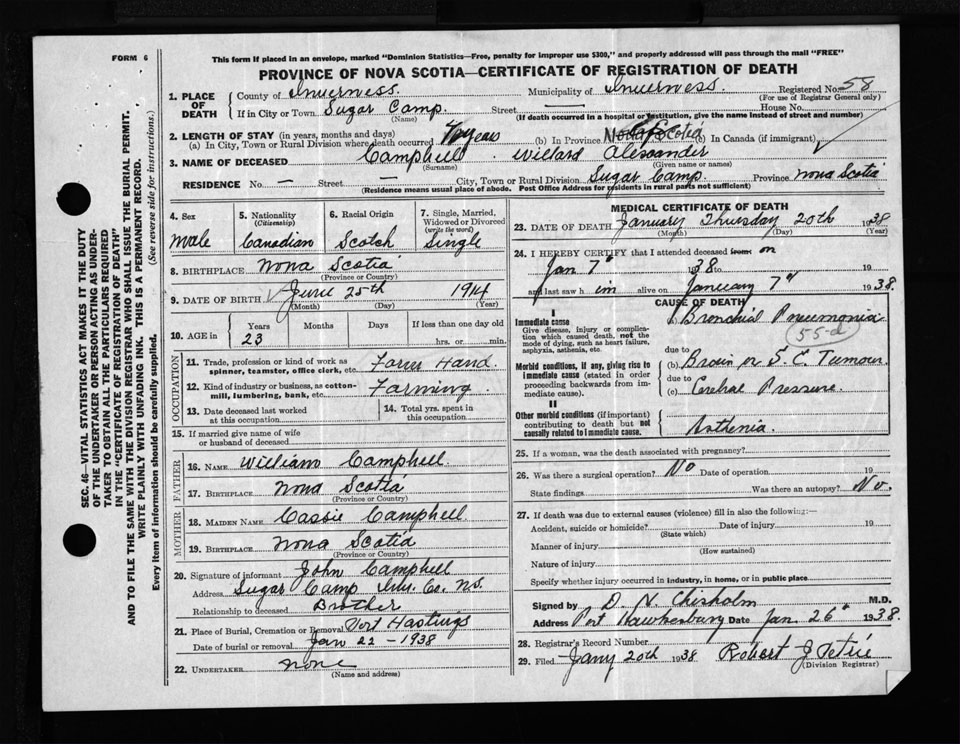 FORM 6
This form if placed in an envelope, marked "Dominion Statistics—Free, penalty for improper use $300," and properly addressed will pass through the mail "FREE"
PROVINCE OF NOVA SCOTIA—CERTIFICATE OF REGISTRATION OF DEATH
1. PLACE OF DEATH County of Inverness. Municipality of Inverness. Registered No. 58
(For use of Registrar General only)
If in City or Town Sugar Camp. Street House No.
(Name) (If death occurred in a hospital or institution, give the name instead of street and number)
2. LENGTH OF STAY (in years, months and days)
(a) In City, Town or Rural Division where death occurred years (b) In Province Nova Scotia (c) In Canada (if immigrant)
3. NAME OF DECEASED Campbell. Willard Alexander
(Surname) (Given name or names)
RESIDENCE No. — Street — City, Town or Rural Division Sugar Camp. Province Nova Scotia
(Residence means usual place of abode. Post Office Address for residents in rural parts not sufficient)
4. Sex Male
5. Nationality (Citizenship) Canadian
6. Racial Origin Scotch
7. Single, Married, Widowed or Divorced (write the word) Single
8. BIRTHPLACE Nova Scotia
(Province or Country)
9. DATE OF BIRTH June 25th 1914
(Month) (Day) (Year)
10. AGE in Years Months Days If less than one day old
23 hrs. or min.
OCCUPATION
11. Trade, profession or kind of work as spinner, teamster, office clerk, etc. Farm Hand.
12. Kind of industry or business, as cotton-mill, lumbering, bank, etc. Farming.
13. Date deceased last worked at this occupation
14. Total yrs. spent in this occupation
15. If married give name of wife or husband of deceased
FATHER
16. NAME William Campbell.
17. BIRTHPLACE Nova Scotia
(Province or Country)
MOTHER
18. MAIDEN NAME Cassie Campbell
19. BIRTHPLACE Nova Scotia
(Province or Country)
20. Signature of informant John Campbell
Address Sugar Camp Inv. Co. N.S.
Relationship to deceased Brother
21. Place of Burial, Cremation or Removal Port Hastings
Date of burial or removal Jan 22 - 1938
22. UNDERTAKER none
(Name and address)
MEDICAL CERTIFICATE OF DEATH
23. DATE OF DEATH January Thursday 20th 1938
(Month) (Day) (Year)
24. I HEREBY CERTIFY that I attended deceased from on
Jan 7" 1938 to 19
and last saw him alive on January 7" 1938.
CAUSE OF DEATH
I
Immediate cause (a) Bronchial Pneumonia
Give disease, injury or complication which caused death, not the mode of dying, such as heart failure, asphyxia, asthenia, etc.
55-d
due to
Morbid conditions, if any, giving rise to immediate cause (stated in order proceeding backwards from immediate cause). (b) Brain or S.C. Tumour.
due to
(c) Cerebral Pressure.
II
Other morbid conditions (if important) contributing to death but not causally related to immediate cause. Asthenia.
25. If a woman, was the death associated with pregnancy?
26. Was there a surgical operation? No Date of operation 19
State findings Was there an autopsy? No.
27. If death was due to external causes (violence) fill in also the following:—
Accident, suicide or homicide? Date of injury 19
(State which)
Manner of injury
(How sustained)
Nature of injury
Specify whether injury occurred in industry, in home, or in public place
Signed by D. N. Chisholm M.D.
Address Port Hawkesbury Date Jan. 26" 1938.
28. Registrar's Record Number
29. Filed Jany 20th 1938 Robert J. Petrie
(Division Registrar)
SEC. 46—VITAL STATISTICS ACT MAKES IT THE DUTY
OF THE UNDERTAKER OR PERSON ACTING AS UNDER-
TAKER TO OBTAIN ALL THE PARTICULARS REQUIRED
IN THE "CERTIFICATE OF REGISTRATION OF DEATH"
AND TO FILE THE SAME WITH THE DIVISION REGISTRAR WHO SHALL ISSUE THE BURIAL PERMIT.
WRITE PLAINLY WITH UNFADING INK. THIS IS A PERMANENT RECORD.
Every item of information should be carefully supplied. (See reverse side for instructions.)